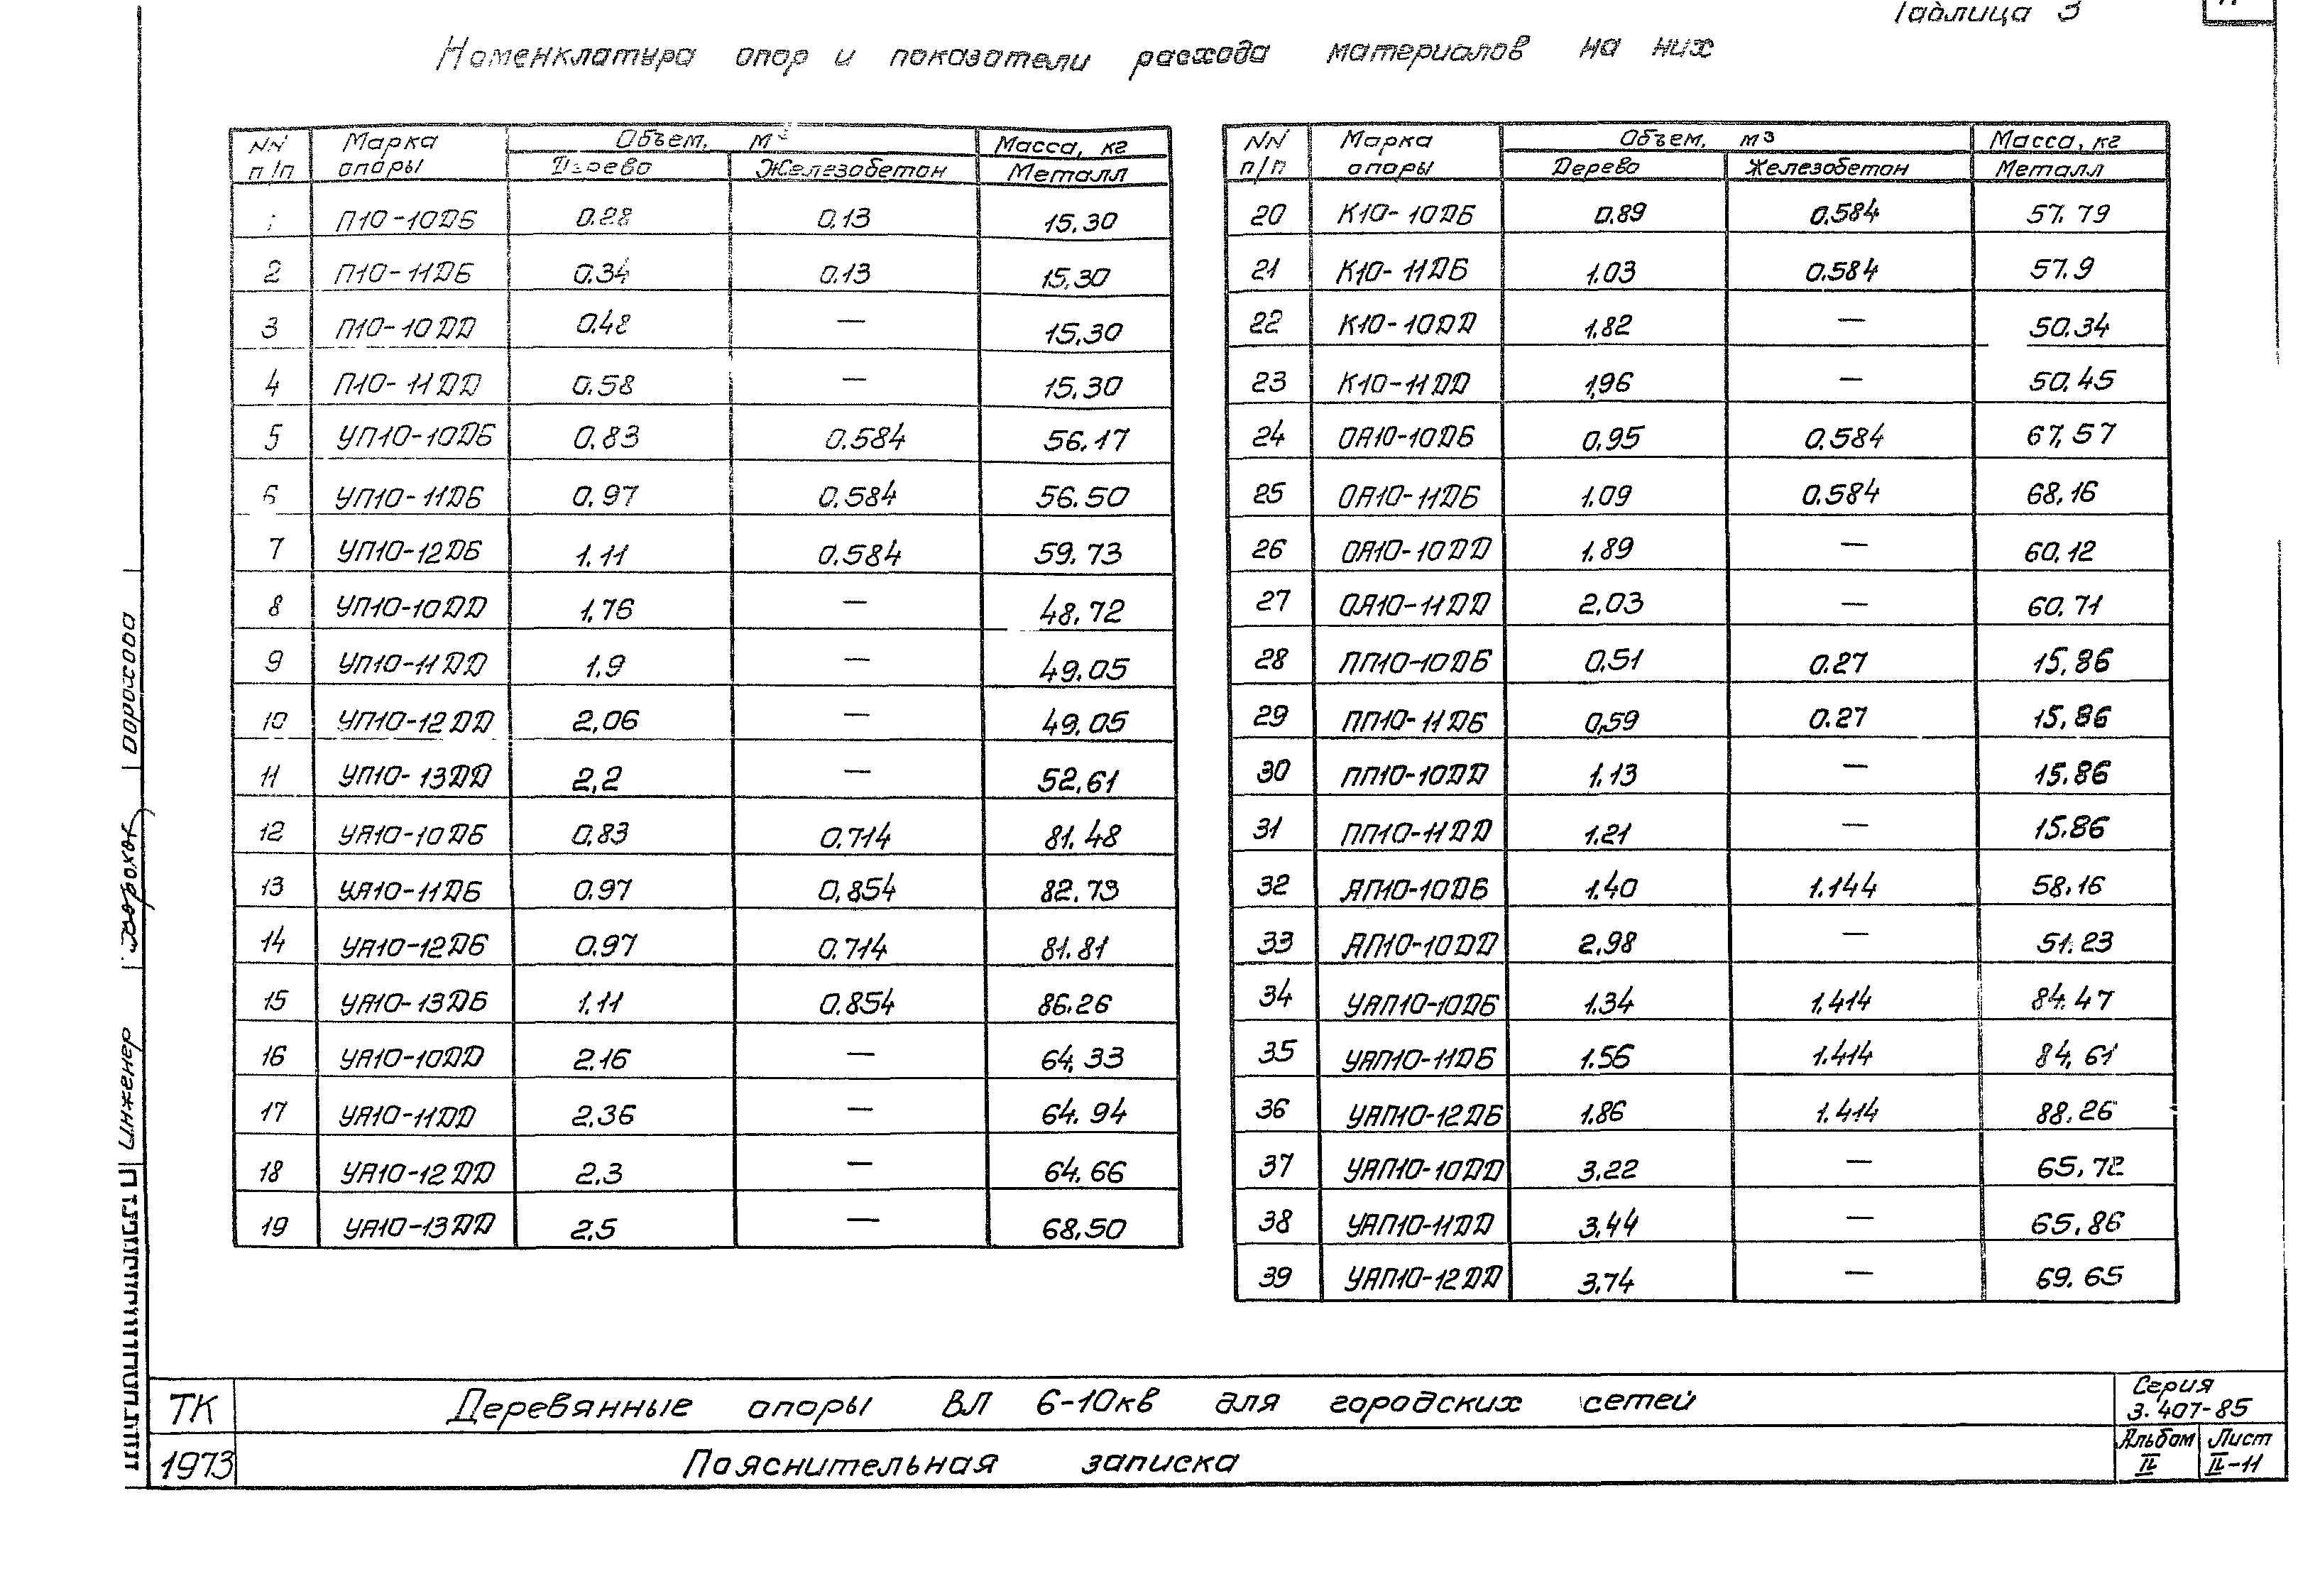 Таблица 3
Номенклатура опор и показатели расхода материалов на них
NN п/п Марка опоры Объем, м³ Масса, кг
Дерево Железобетон Металл
1 П10-10ДБ 0.28 0.13 15.30
2 П10-11ДБ 0.34 0.13 15.30
3 П10-10ДД 0.48 — 15.30
4 П10-11ДД 0.58 — 15.30
5 УП10-10ДБ 0.83 0.584 56.17
6 УП10-11ДБ 0.97 0.584 56.50
7 УП10-12ДБ 1.11 0.584 59.73
8 УП10-10ДД 1.76 — 48.72
9 УП10-11ДД 1.9 — 49.05
10 УП10-12ДД 2.06 — 49.05
11 УП10-13ДД 2.2 — 52.61
12 УА10-10ДБ 0.83 0.714 81.48
13 УА10-11ДБ 0.97 0.854 82.73
14 УА10-12ДБ 0.97 0.714 81.81
15 УА10-13ДБ 1.11 0.854 86.26
16 УА10-10ДД 2.16 — 64.33
17 УА10-11ДД 2.36 — 64.94
18 УА10-12ДД 2.3 — 64.66
19 УА10-13ДД 2.5 — 68.50
NN п/п Марка опоры Объем, м³ Масса, кг
Дерево Железобетон Металл
20 К10-10ДБ 0.89 0.584 57.79
21 К10-11ДБ 1.03 0.584 57.9
22 К10-10ДД 1.82 — 50.34
23 К10-11ДД 1,96 — 50.45
24 ОА10-10ДБ 0.95 0.584 67.57
25 ОА10-11ДБ 1.09 0.584 68.16
26 ОА10-10ДД 1.89 — 60.12
27 ОА10-11ДД 2.03 — 60.71
28 ПП10-10ДБ 0.51 0.27 15.86
29 ПП10-11ДБ 0,59 0.27 15.86
30 ПП10-10ДД 1.13 — 15.86
31 ПП10-11ДД 1.21 — 15.86
32 АП10-10ДБ 1.40 1.144 58.16
33 АП10-10ДД 2.98 — 51.23
34 УАП10-10ДБ 1.34 1.414 84.47
35 УАП10-11ДБ 1.56 1.414 84.61
36 УАП10-12ДБ 1.86 1.414 88.26
37 УАП10-10ДД 3.22 — 65.72
38 УАП10-11ДД 3.44 — 65.86
39 УАП10-12ДД 3.74 — 69.65
Инженер Дорохова
ТК Деревянные опоры ВЛ 6-10кв для городских сетей
Серия
3.407-85
1973 Пояснительная записка
Альбом Лист
II II-11